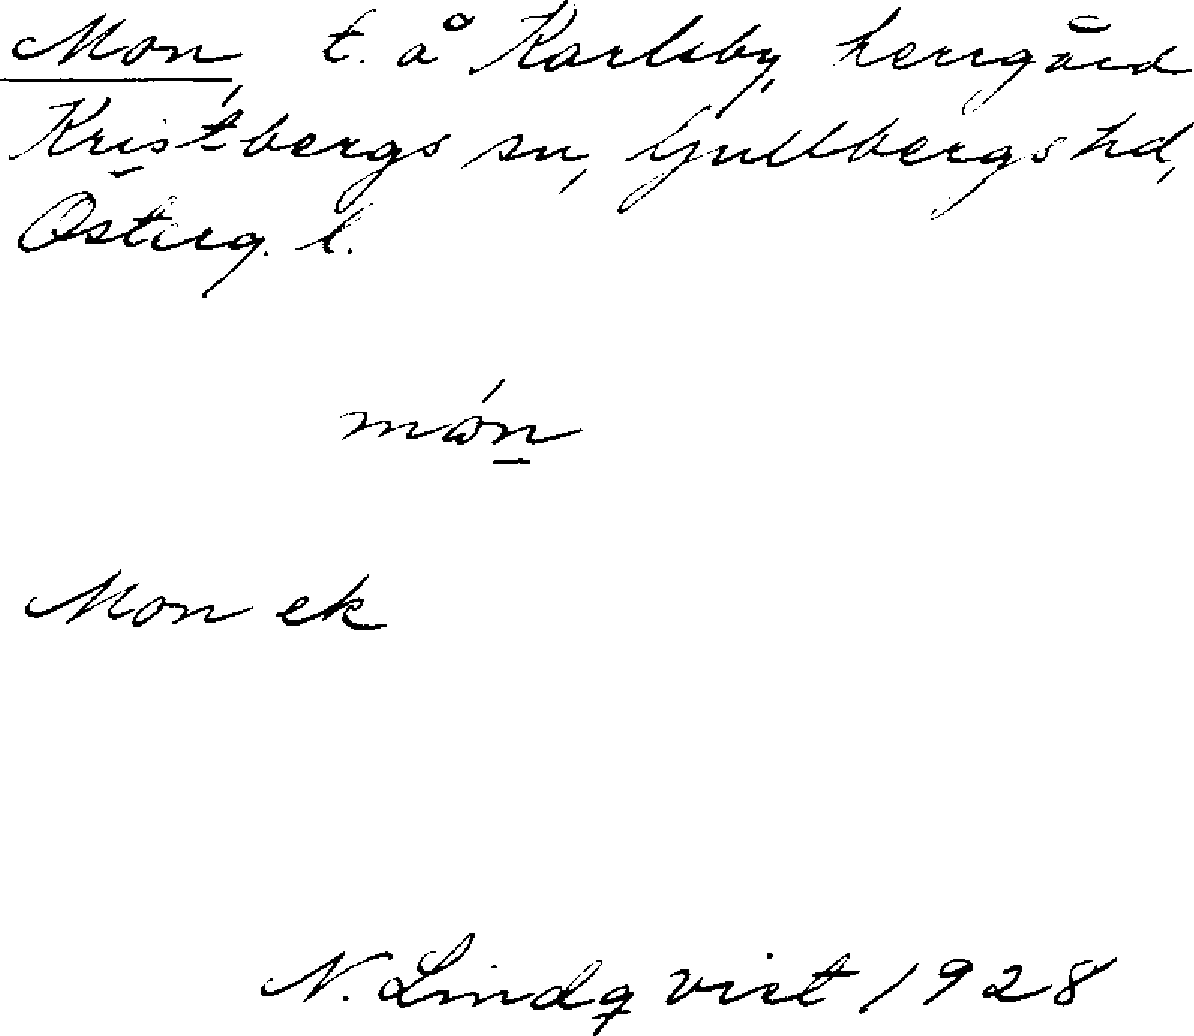 Mon, t. å Karlsby, herrgård
Kristbergs sn, Gullbergs hd,
Österg. l.
món
Mon ek
N. Lindqvist 1928